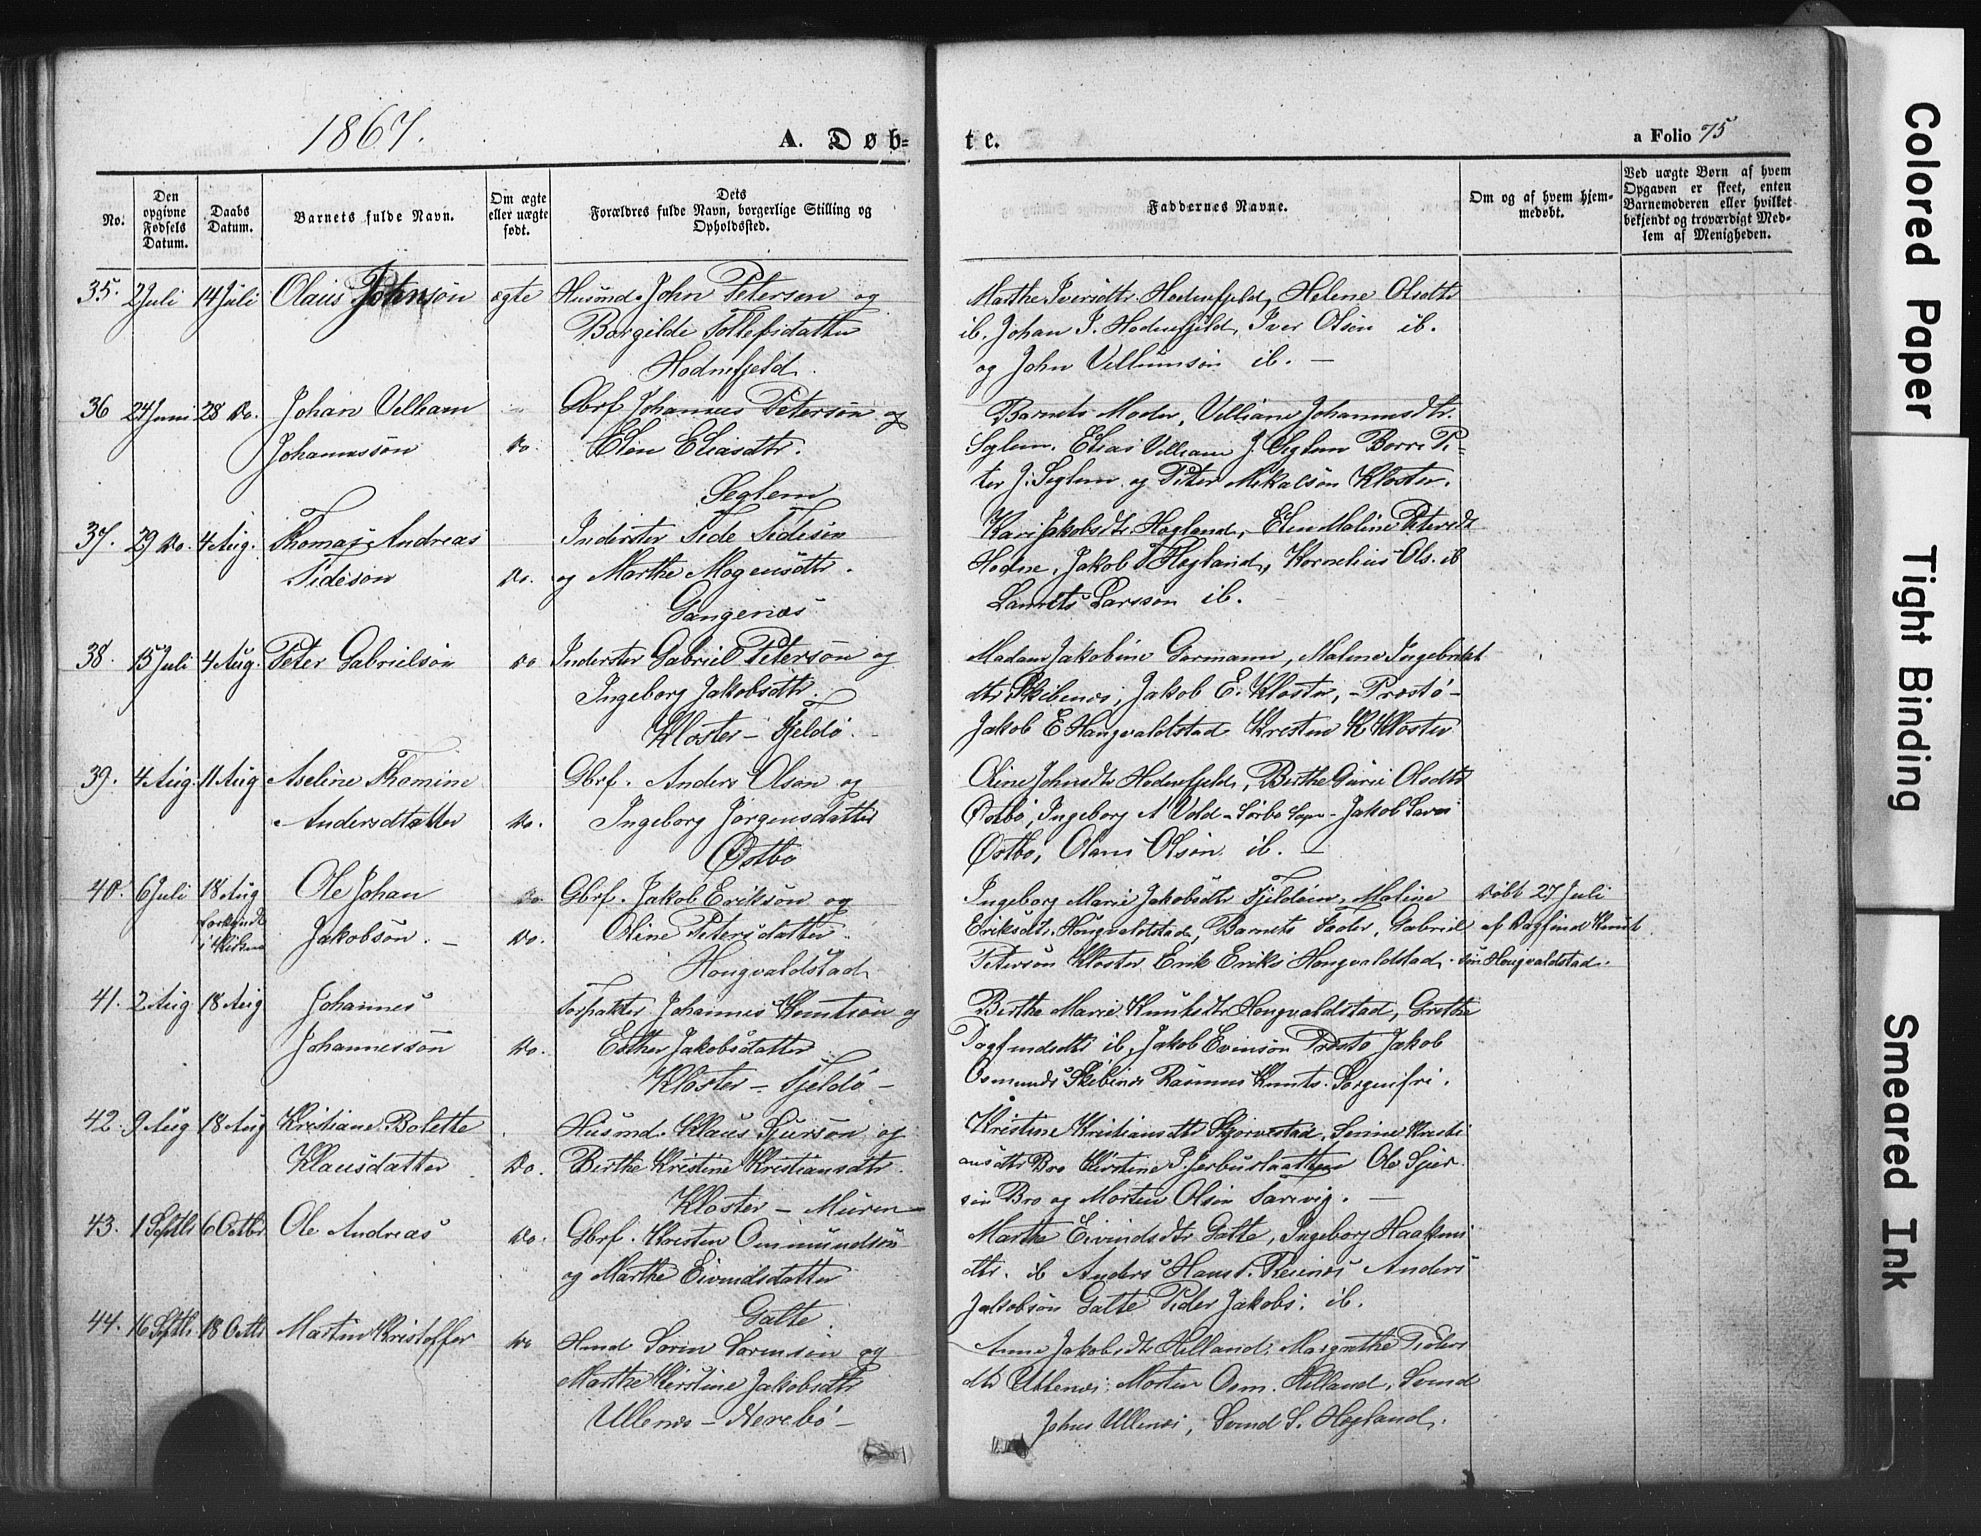 1867.
A. Døb-
te.
a Folio 75
No.
Den opgivne Fødsels Datum.
Daabs Datum.
Barnets fulde Navn.
Om ægte eller uægte født.
Dets Forældres fulde Navn, borgerlige Stilling og Opholdssted.
Faddernes Navne.
Om og af hvem hjemmedøbt.
Ved uægte Børn af hvem Opgaven er skeet, enten Barnemoderen eller hvilket bekjendt og troværdigt Medlem af Menigheden.
35. 2 Juli 14 Juli Olaus Johnsøn ægte Husmd. John Petersen og
Borgilde Tollefsdatter
Hodnefjeld.
Marthe Iversdtr. Hodnefjeld, Helene Olsdtr
ib. Johan J. Hodnefjeld, Iver Olsen ib.
og John Villumsøn ib. —
36 24 Juni 28 Do. Johan Velleam Gbrf. Johannes Petersøn og
Johannessøn Do. Elen Eliasdtr.
Seglem
Barnets Moder, Villiane Johannesdtr.
Seglem. Elias Velleam J. Seglem Borre Pe-
ter J. Seglem og Peter Mikalsøn Kloster.
37. 29 Do. 4 Aug. Thomas Andreas Inderster Tide Tidesøn
Tidesøn Do. og Marthe Mogensdtr.
Gangenæs
Kari Jakobsdtr Hogland, Elen Maline Petersdt
Hodne, Jakob T Hogland, Kornelius Ols. ib
Laurits Larsson ib.
38. 15 Juli 4 Aug. Peter Gabrielsøn Do Inderster Gabriel Petersøn og
Ingeborg Jakobsdtr.
Kloster – Fjeldø.
Madam Jakobine Gormann, Malene Ingebrikt
dtr Skibenes, Jakob E. Kloster, – Prestø –
Jakob E Hougvaldstad Kresten K Kloster
39. 4 Aug. 11 Aug Aseline Thomine Gbrf. Anders Olsen og
Andersdtatter Do. Ingeborg Jørgensdatter
Østbø
Oline Johnsdtr Hodnefjeld, Berthe Gurie Olsdtr
Østbø, Ingeborg A Vold – Sørbø Sogn – Jakob Lars
Østbø, Olaus Olsøn ib. —
40. 6 Juli 18 Aug Ole Johan Do Gbrf. Jakob Eriksøn og
forkyndt
i Kirken Jakobsøn. – Do. Oline Petersdatter
Hougvaldstad
Ingeborg Marie Jakobsdtr Fjeldøen, Maline
Eriksdtr. Hougvaldstad, Barnets Fader, Gabriel
Petersøn Kloster Erik Eriks Hougvaldstad.
Døbt 27 Juli
af Dagfind Knut
søn Hougvaldstad.
41. 2 Aug 18 Aug Johannes Forpakter Johannes Knutsøn og
Johannessøn Do. Esther Jakobsdatter
Kloster – Fjeldø –
Berthe Marie Knutsdtr Hougvaldstad, Grethe
Dagfindsdtr ib, Jakob Evensøn Prestø Jakob
Osmunds Skibenes Rasmus Knuts. Sorgenfri.
42. 9 Aug 18 Aug Kristiane Bolette Husmd. Klaus Sjursøn og
Klausdatter Do. Berthe Kristine Kristiansdtr.
Kloster – Muren –
Kristine Kristiansdtr Skjorvestad, Senine Kristi
ansdtr Bro Kirstine Ole Sjur
søn Bro og Morten Olsøn Larevig. —
43. 1 Septb 6 Octbr Ole Andreas Do. Gbrf. Kresten Ommundsøn
og Marthe Eivindsdatter
Galte.
Marthe Eivindsdtr Galte, Ingeborg Haakens
dtr. ib Anders Hans. Reines Anders
Jakobsøn Galte Peder Jakobs. ib.
44. 16 Septb. 18 Octb. Martin Kristoffer Do Hmd Søren Sørensøn og
Marthe Kirstine Jakobsdtr
Ullenes – Nerebø –
Anne Jakobsdtr Helland, Margrethe Peders
dtr Ullenes, Morten Osm. Helland, Svend
Johns Ullenes, Svend S. Hogland.
Colored Paper
Tight Binding
Smeared Ink